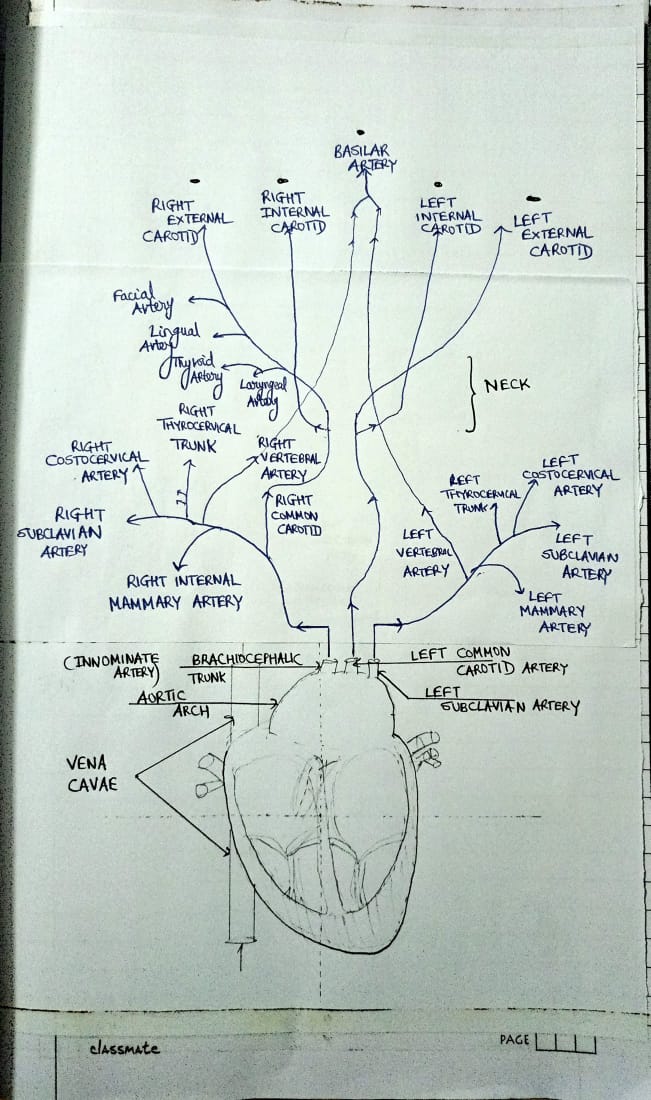 BASILAR
ARTERY
RIGHT
EXTERNAL
CAROTID
RIGHT
INTERNAL
CAROTID
LEFT
INTERNAL
CAROTID
LEFT
EXTERNAL
CAROTID
Facial
Artery
Lingual
Artery
Thyroid
Artery
Laryngeal
Artery
NECK
RIGHT
THYROCERVICAL
TRUNK
RIGHT
COSTOCERVICAL
ARTERY
RIGHT
VERTEBRAL
ARTERY
RIGHT
SUBCLAVIAN
ARTERY
RIGHT
COMMON
CAROTID
RIGHT INTERNAL
MAMMARY ARTERY
LEFT
VERTEBRAL
ARTERY
LEFT
THYROCERVICAL
TRUNK
LEFT
COSTOCERVICAL
ARTERY
LEFT
SUBCLAVIAN
ARTERY
LEFT
MAMMARY
ARTERY
(INNOMINATE
ARTERY)
BRACHIOCEPHALIC
TRUNK
LEFT COMMON
CAROTID ARTERY
AORTIC
ARCH
LEFT
SUBCLAVIAN ARTERY
VENA
CAVAE
classmate
PAGE